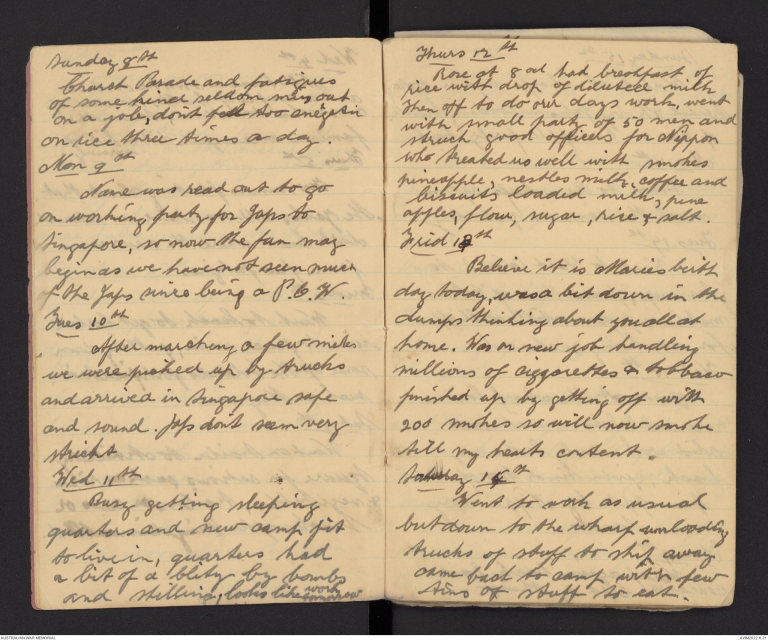 Sunday 8th
Church Parade and fatigues
of some kind seldom miss out
on a job, dont feel too energetic
on rice three times a day.
Mon 9th
Name was read out to go
on working party for Japs to
Singapore, so now the fun may
begin as we have not seen much
of the Japs since being a P.O.W.
Tues 10th
After marching a few miles
we were picked up by trucks
and arrived in Singapore safe
and sound. Japs dont seem very
strict
Wed 11th
Busy getting sleeping
quarters and new camp fit
to live in, quarters had
a bit of a blitz by bombs
and shelling, looks like work
tomorrow
Thurs 12th
Rose at 8 ocl had breakfast of
rice with drop of diluted milk
then off to do our days work, went
with small party of 50 men and
struck good officers for Nippon
who treated us well with smokes
pineapple, nestles milk, coffee and
biscuits loaded milk, pine
apples, flour, sugar, rice & salt.
Frid 13th
Believe it is Maries birth
day today, was a bit down in the
dumps thinking about you all at
home. Was on new job handling
millions of ciggarettes & tobbacco
finished up by getting off with
200 smokes so will now smoke
till my hearts content.
Saturday 14th
Went to work as usual
but down to the wharf unloading
trucks of stuff to ship away
came back to camp with few
tins of stuff to eat.
AUSTRALIAN WAR MEMORIAL
AWM2022.6.21